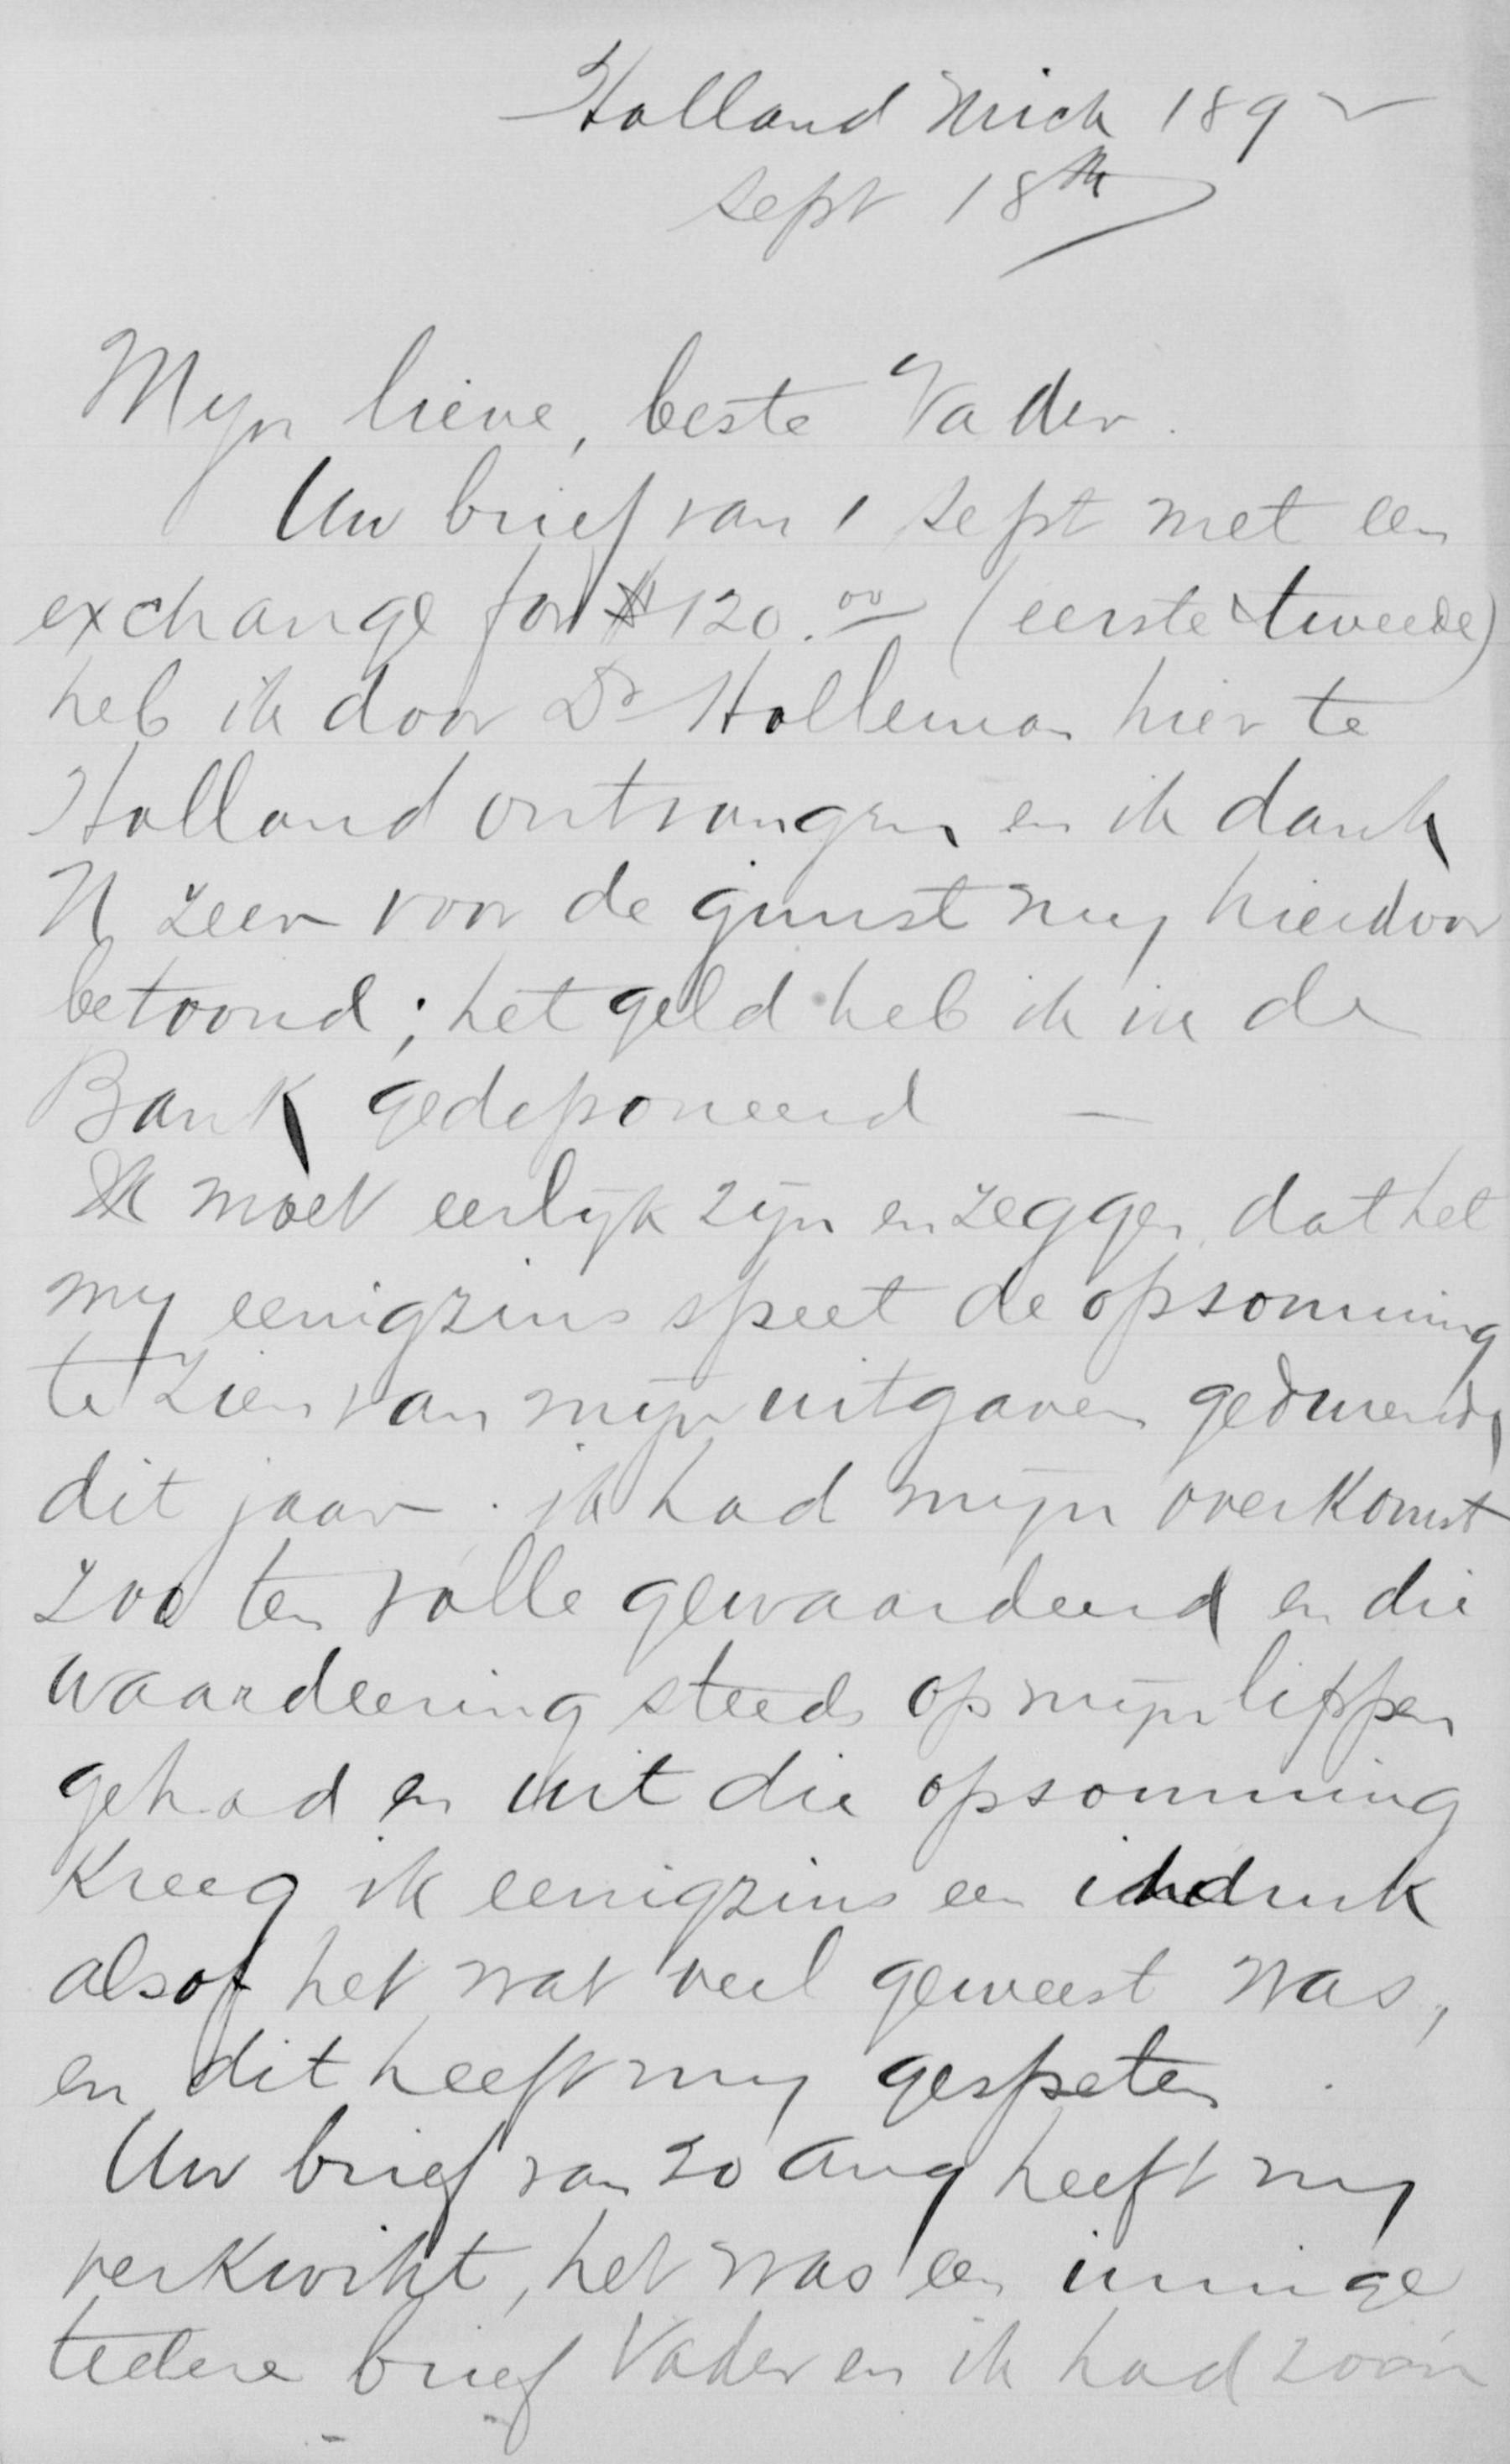 Holland Mich 1892
Sept 18th
Mijn lieve, beste Vader.
Uw brief van 1 Sept met een
exchange for $120.00 (eerste & tweede)
heb ik door Dr Holleman hier te
Holland ontvangen en ik dank
U zeer voor de gunst my hierdoor
betoond; het geld heb ik in de
Bank gedeponeerd —
Ik moet eerlijk zijn en zeggen, dat het
my eenigzins speet de opsomming
te zien van mijn uitgaven gedurende
dit jaar. ik had mijn overkomst
zoo ten volle gewaardeerd en die
waardeering steeds op mijn lippen
gehad en uit die opsomming
kreeg ik eenigzins een indruk
alsof het wat veel geweest was,
en dit heeft my gespeten.
Uw brief van 20 Aug heeft my
verkwikt, het was een innige
tedere brief Vader en ik had zoo'n